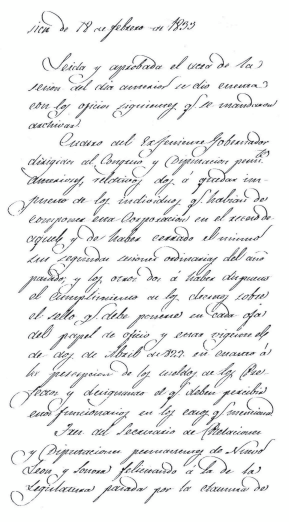 sion de 18 de febrero de 1833
Leida y aprobada el acta de la
sesion del dia anterior se dio cuenta
con los oficios siguientes q.e se mandaron
archivar.
Cuatro del Ex.mo Gobernador
dirigidos al Congreso y Diputacion perm.te
relativos dos á quedar im-
puesto de los individuos q.e habian de
componer esta Corporacion en el receso de
aquel y de haber cerrado el mismo
sus segundas sesiones ordinarias del año
pasado, y los otros dos á haber dispuesto
el cumplimiento de los decretos sobre
el sello q.e debe ponerse en cada oja
del papel de oficio y estar vigente el
de dos de Abril de 822 en cuanto á
la percepcion de los sueldos de los Pre-
fectos y designando el q.e deben percibir
estos funcionarios en los casos q.e menciona
Tres del Secretario de Relaciones
y Diputaciones permanentes de Nuevo
Leon, y Sonora felicitando á la de la
Legislatura pasada por la clausura de